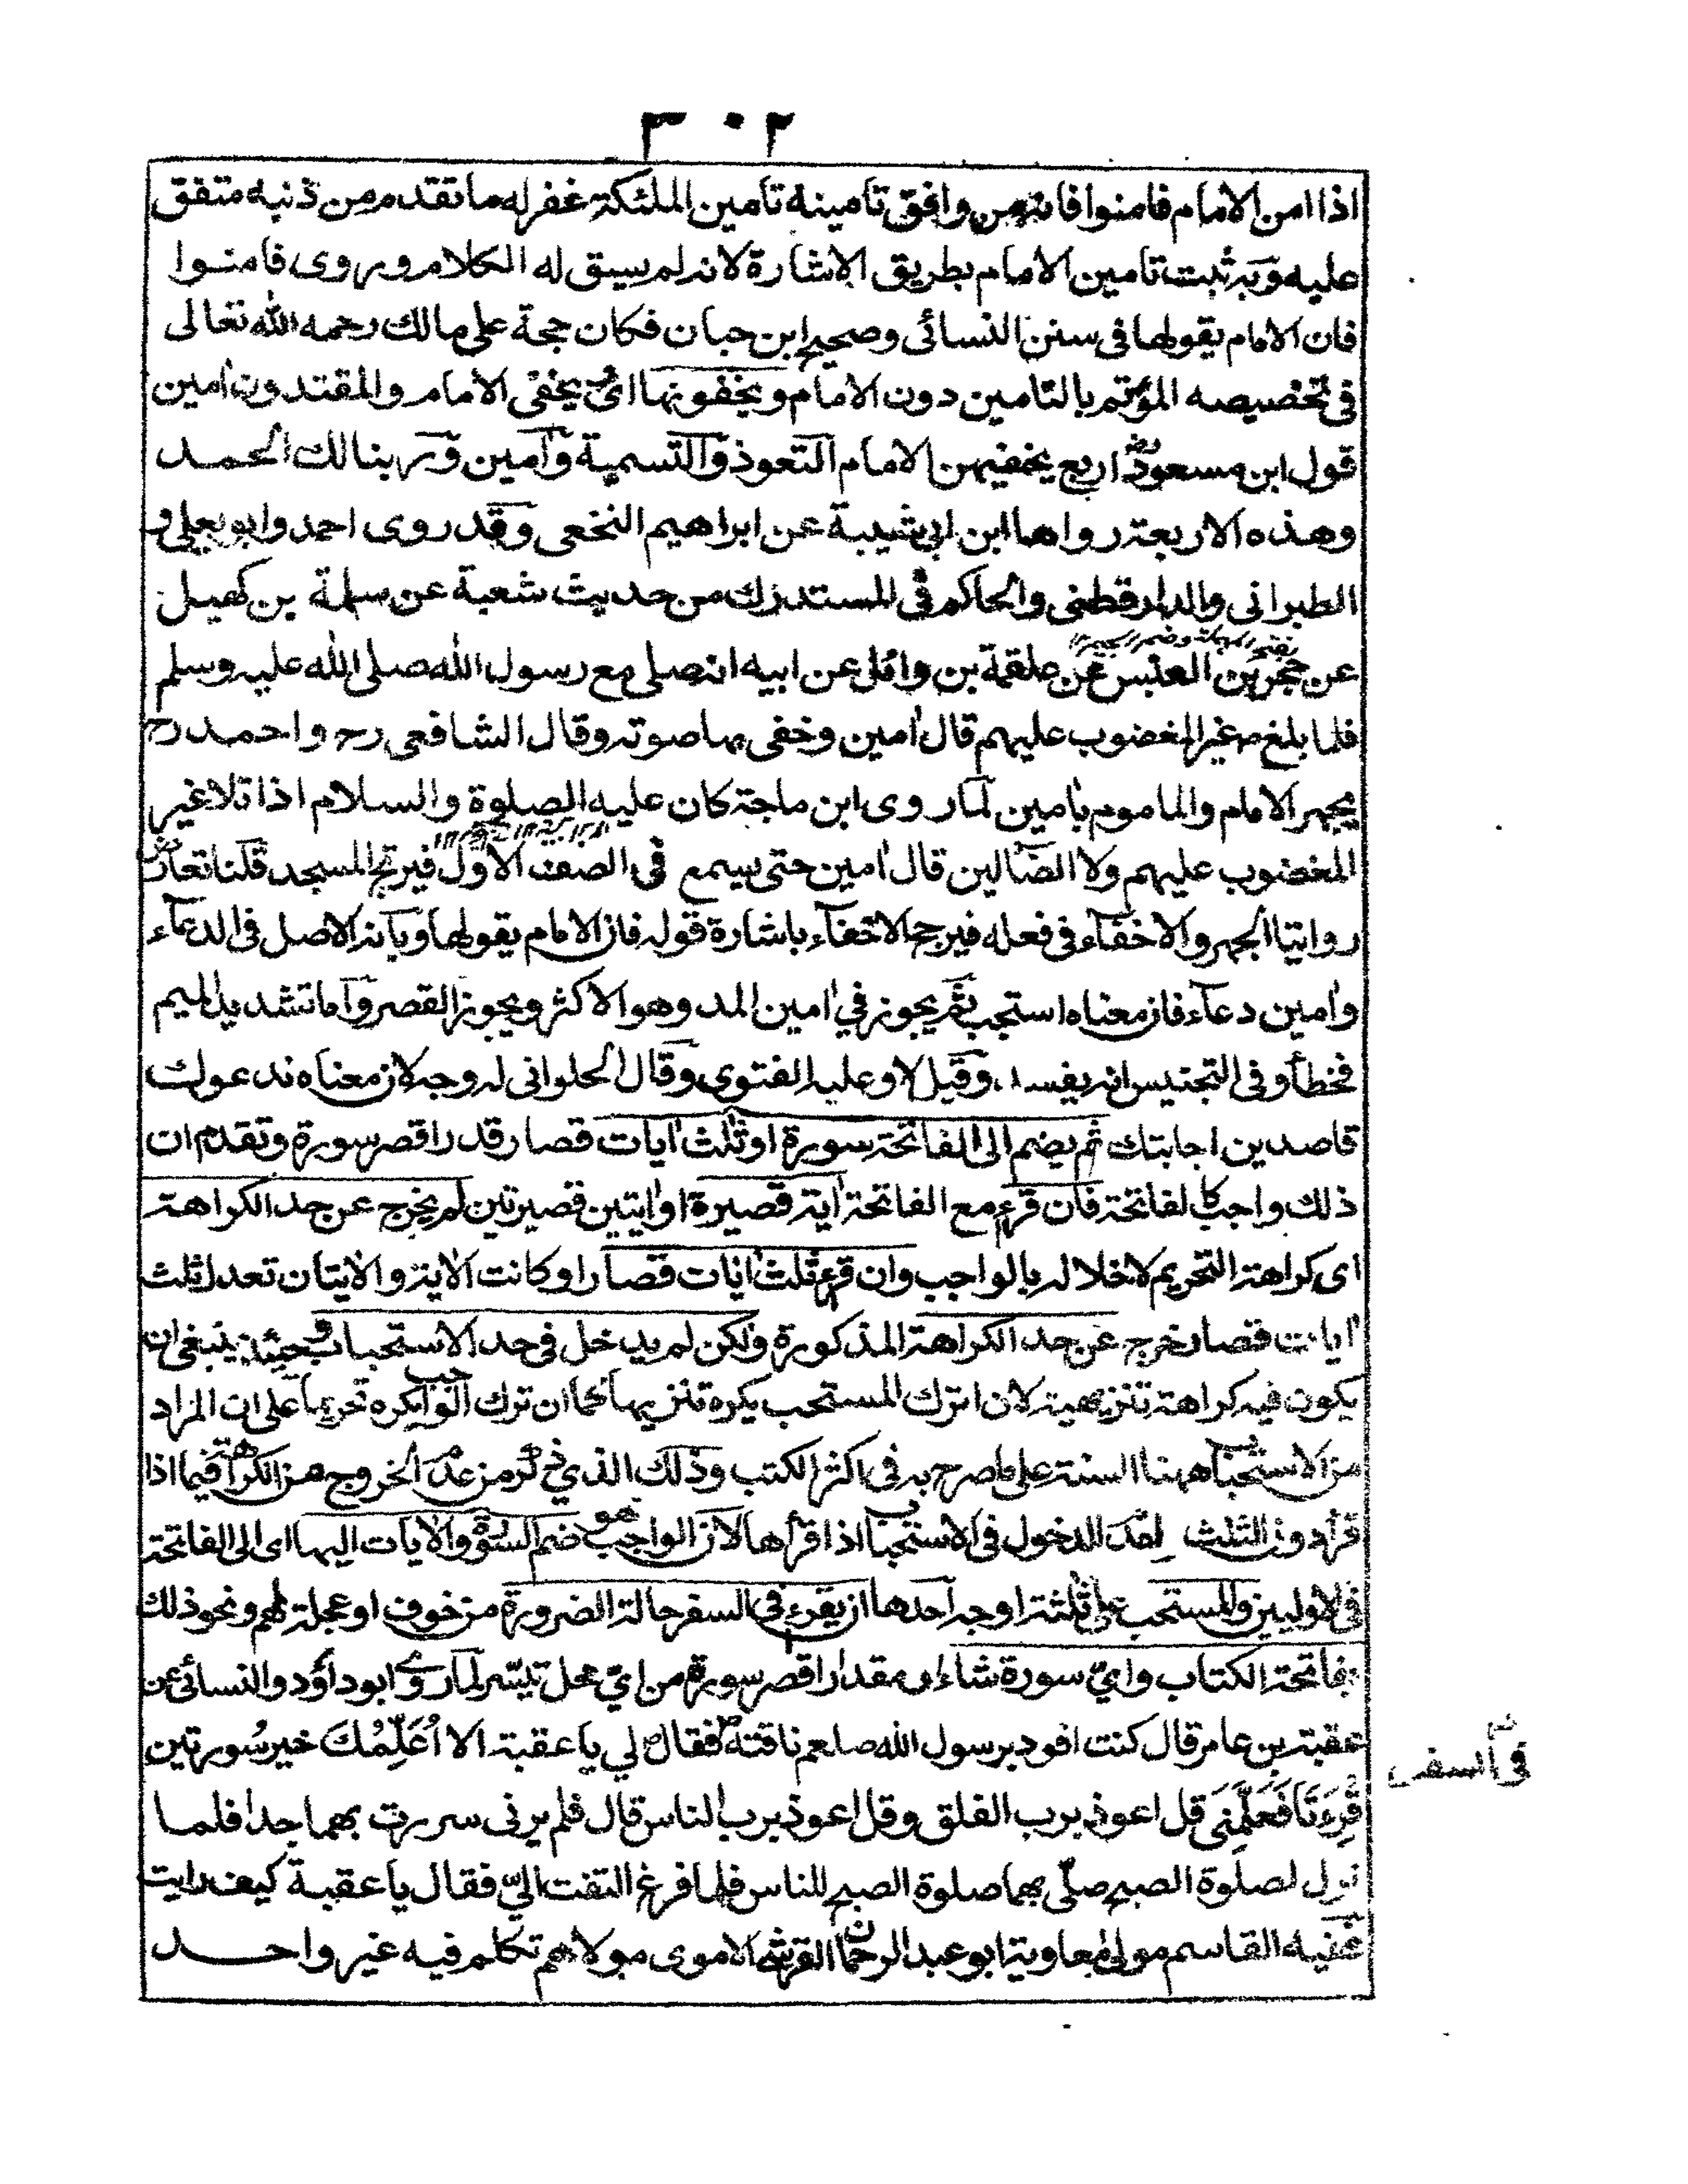 ٣٠٢
اذا امن الامام فامنوا فانه من وافق تامينه تامين الملئكة غفر له ما تقدم من ذنبه متفق
عليه وبه ثبت تامين الامام بطريق الاشارة لانه لم يسق له الكلام وروى فامنوا
فان الامام يقولها في سنن النسائى وصحيح ابن حبان فكان حجة على مالك رحمه الله تعالى
فى تخصيصه المؤتم بالتامين دون الامام ويخفونها اى يخفى الامام والمقتدون امين
قول ابن مسعود رض اربع يخفيهن الامام التعوذ والتسمية وامين وربنا لك الحمد
وهذه الاربعة رواها ابن ابى شيبة عن ابراهيم النخعى وقد روى احمد وابو يعلى و
الطبرانى والدارقطنى والحاكم فى المستدرك من حديث شعبة عن سلمة بن كهيل
بفتح المهملة وضم الجيم ١٢
عن حجر بن العنبس عن علقمة بن وائل عن ابيه انه صلى مع رسول الله صلى الله عليه وسلم
فلما بلغ غير المغضوب عليهم قال امين وخفى بها صوته وقال الشافعى رح واحمد رح
يجهر الامام والماموم بامين لما روى ابن ماجة كان عليه الصلوة والسلام اذا تلا غير
المغضوب عليهم ولا الضالين قال امين حتى يسمع فى الصف الاول فيرتج المسجد قلنا تعارض
روايتا الجهر والاخفاء فى فعله فيرجح الاخفاء باشارة قوله فان الامام يقولها وبانه الاصل فى الدعاء
وامين دعاء فان معناه استجب ثم يجوز في امين المد وهو الاكثر ويجوز القصر واما تشديد الميم
فخطأ وفى التجنيس انه يفسد، وقيل لا وعليه الفتوى وقال الحلوانى له وجه لان معناه ندعوك
قاصدين اجابتك ثم يضم الى الفاتحة سورة او ثلث ايات قصار قدر اقصر سورة وتقدم ان
ذلك واجب كالفاتحة فان قرء مع الفاتحة اية قصيرة او ايتين قصيرتين لم يخرج عن حد الكراهة
اى كراهة التحريم لاخلاله بالواجب وان قرء ثلث ايات قصارا وكانت الاية والايتان تعدل ثلث
ايات قصار خرج عن حد الكراهة المذكورة ولكن لم يدخل فى حد الاستحباب وحينئذ ينبغى ان
يكون فيه كراهة تنزيهية لان ترك المستحب يكره تنزيها كما ان ترك الواجب يكره تحريما على ان المراد
من الاستحباب ههنا السنة على ما صرح به فى اكثر الكتب وذلك الذى ذكر من عدم الخروج من الكراهة فيما اذا
قرأ دون الثلث لعدم الدخول فى الاستحباب اذا قرأها لان الواجب هو ضم السورة والايات اليها اى الى الفاتحة
فى الاوليين والمستحب على ثلثة اوجه احدها ان يقرء فى السفر حالة الضرورة من خوف او عجلة لهم ونحو ذلك
بفاتحة الكتاب واي سورة شاء او مقدار اقصر سورة من اي محل تيسر لما روى ابو داؤد والنسائى عن
عقبة بن عامر قال كنت اقود برسول الله صلعم ناقته فقال لي يا عقبة الا اُعَلِّمُكَ خير سُورتين
فى السفر
قُرِءَتَا فَعَلَّمَنِى قل اعوذ برب الفلق وقل اعوذ برب الناس قال فلم يرنى سررت بهما جدا فلما
نزل لصلوة الصبح صلّى بهما صلوة الصبح للناس فلما فرغ التفت الىّ فقال يا عقبة كيف رايت
ففيه القاسم مولى معاوية ابو عبد الرحمان القرشى الاموى مولاهم تكلم فيه غير واحد